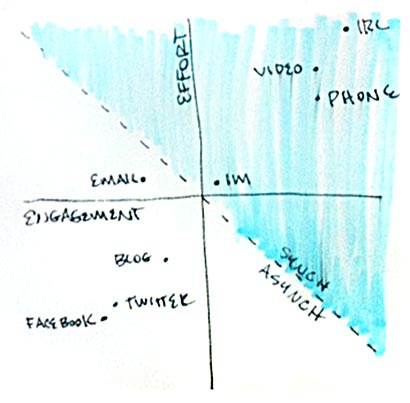 EFFORT
IRL
VIDEO
PHONE
EMAIL
IM
ENGAGEMENT
BLOG
SYNCH
ASYNCH
TWITTER
FACEBOOK